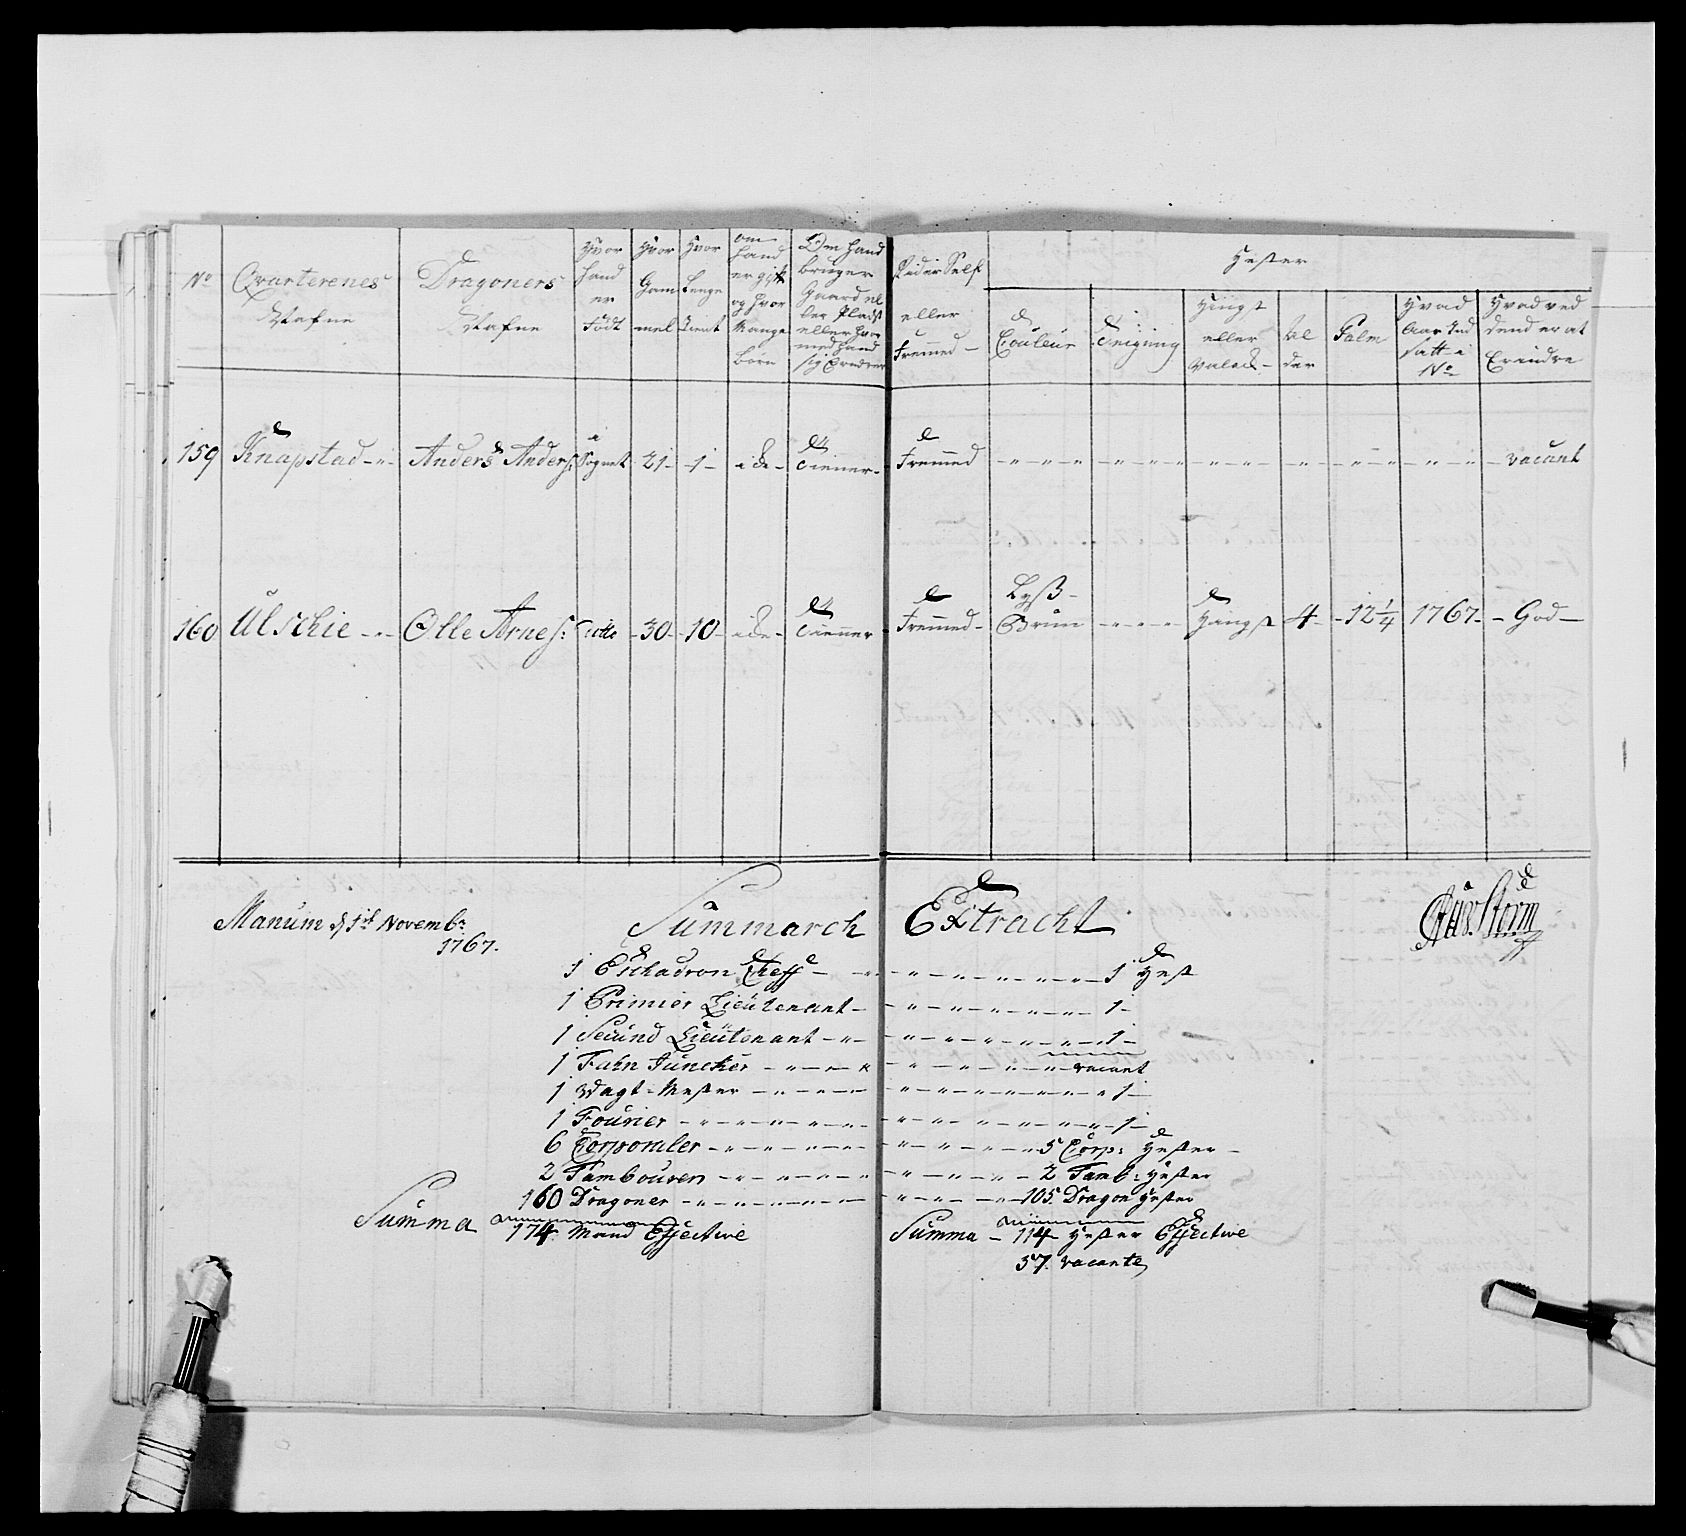 No
Qvarterenes
Nafne
Dragoners
Nafne
Hvor
hand
er
Født
Hvor
Gam
mel
Hvor
Lenge
tient
om
hand
er gift
og hvor
Mange
børn
Om hand
bruger
Gaard el
ler Plads
eller hvor
med hand
sig Ernærer
Rider Self
eller
fremmed
Hester
Couleur
Teigning
Hingst
eller
Valack
Al
der
Palm
Hvad
Aar Ind
satt i
No
Hvad ved
dend er at
Erindre
159 Knapstad Anders Anders: i Sognet 21 1 i de Tiener fremmed vacant
160 Ulschie Olle Arnes: Ditto 30 10 i de Tienner fremmed Lyß Brun Hingst 4 12 1/4 1767 God
Manum d 1te Novembr
1767.
Summarck Extracht
1 Eschadron Cheff 1 Hest
1 Primier Lieutenant 1
1 Secund Lieutenant 1
1 Fahn Juncker vacant
1 Vagt-Mester 1
1 Fourier 1
6 Corporaler 5 Corp: Hester
2 Tambouren 2 Tamb: Hester
160 Dragoner 105 Dragon Hester
Summa 174 Mand Effective Summa 114 Hester Effective
57 vacante